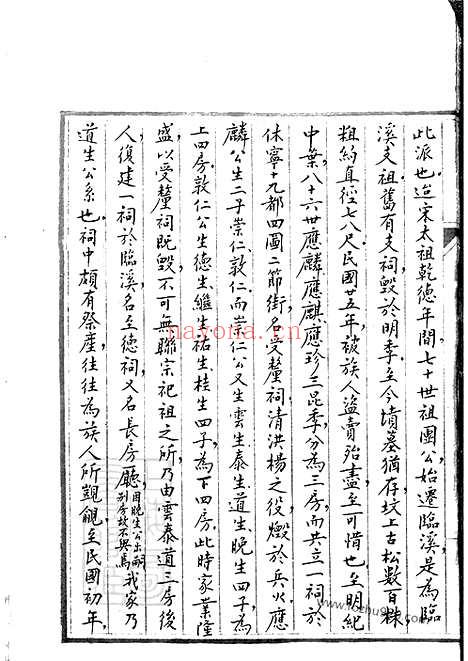 此派也迨宋太祖乾德年間七十世祖團公始遷臨溪是為臨
溪支祖舊有支祠毀於明季至今墳墓猶存坟上古松數百株
粗約直徑七八尺民國廿五年被族人盜賣殆盡至可惜也至明紀
中葉八十六世應麟應麒應珍三昆季分為三房而共立一祠於
休寧十九都四圖二節街名受釐祠清洪楊之役燬於兵火應
麟公生二子崇仁敦仁而崇仁公又生雲生泰生道生晚生四子為
上四房敦仁公生德生繼生祐生桂生四子為下四房此時家業隆
盛以受釐祠既毀不可無聯宗祀祖之所乃由雲泰道三房後
人復建一祠於臨溪名至德祠又名長房廳因晚生公出嗣別房故不與焉我家乃
道生公系也祠中頗有祭產往往為族人所觀覦至民國初年
nayona.cn